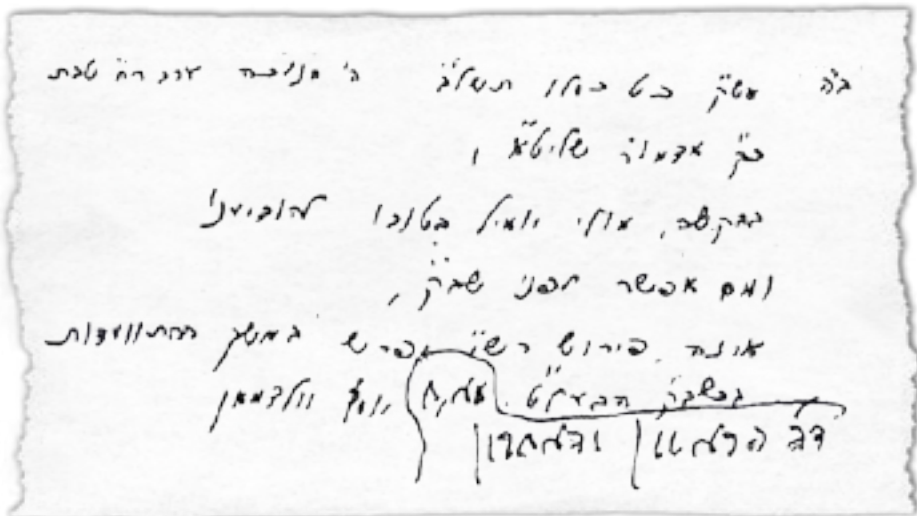 ב"ה עש"ק כט כסלו תשל"ב ה' חנוכה ערב ר"ח טבת
כ"ק אדמו"ר שליט"א,
בבקשה, אולי יואיל בטובו להודיענו
ואם אפשר לפני שב"ק,
איזה פירוש רש"י יפרש במשך ההתוועדות
בשב"ק הבעל"ט. יואל וולדמאן